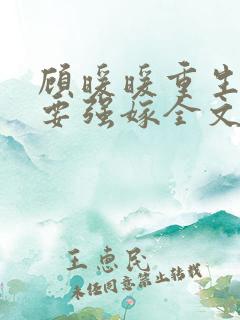 顾暖暖重生
要强嫁全文
王惠民
未经同意禁止转载